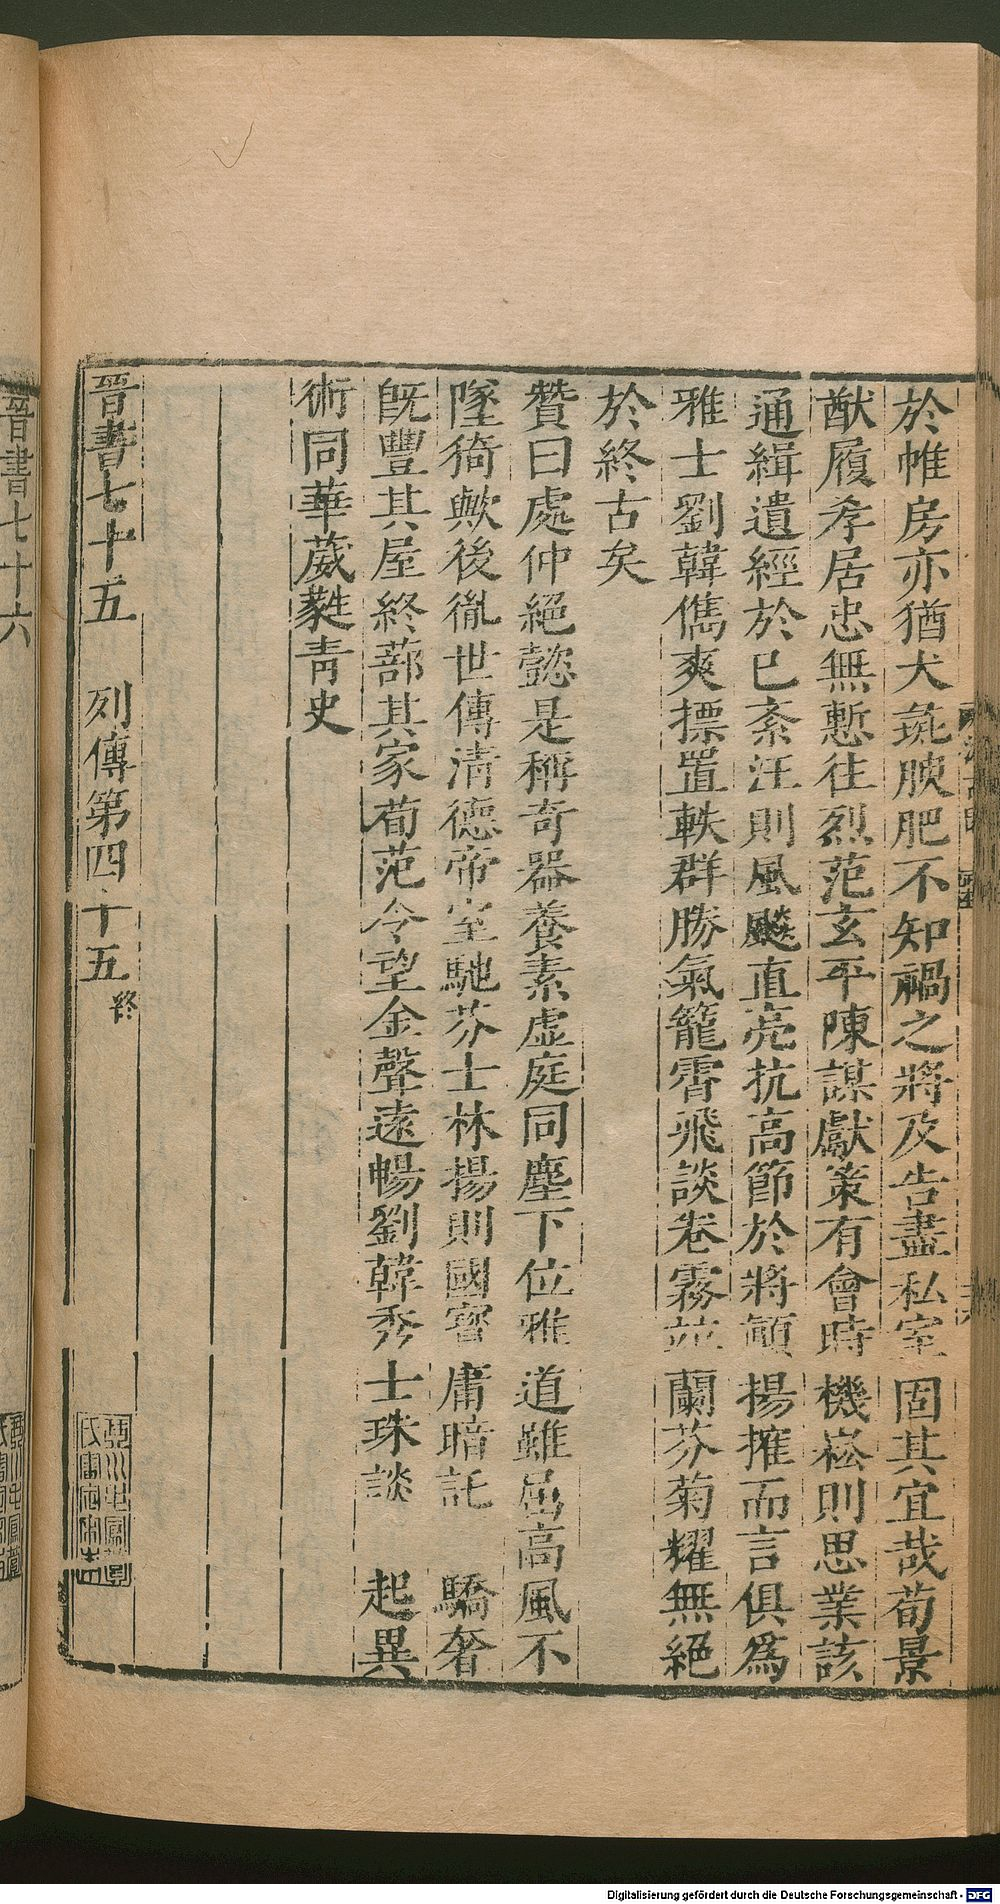 於帷房亦猶犬彘腴肥不知禍之將及告盡私室固其宜哉荀景
猷履孝居忠無慙往烈范玄平陳謀獻策有會時機崧則思業該
通緝遺經於已紊汪則風飈直亮抗高節於將顛揚搉而言俱爲
雅士劉韓儁爽摽置軼群勝氣籠霄飛談卷霧並蘭芬菊耀無絕
於終古矣
贊曰處仲絕懿是稱奇器養素虛庭同塵下位雅道雖屈高風不
墜猗歟後胤世傳清德帝室馳芬士林揚則國寳庸暗託 驕奢
旣豐其屋終蔀其家荀范令望金聲遠暢劉韓秀士珠談 起異
術同華葳蕤靑史
晉書七十五 列傳第四十五 終
晉書七十六
Digitalisierung gefördert durch die Deutsche Forschungsgemeinschaft - DFG